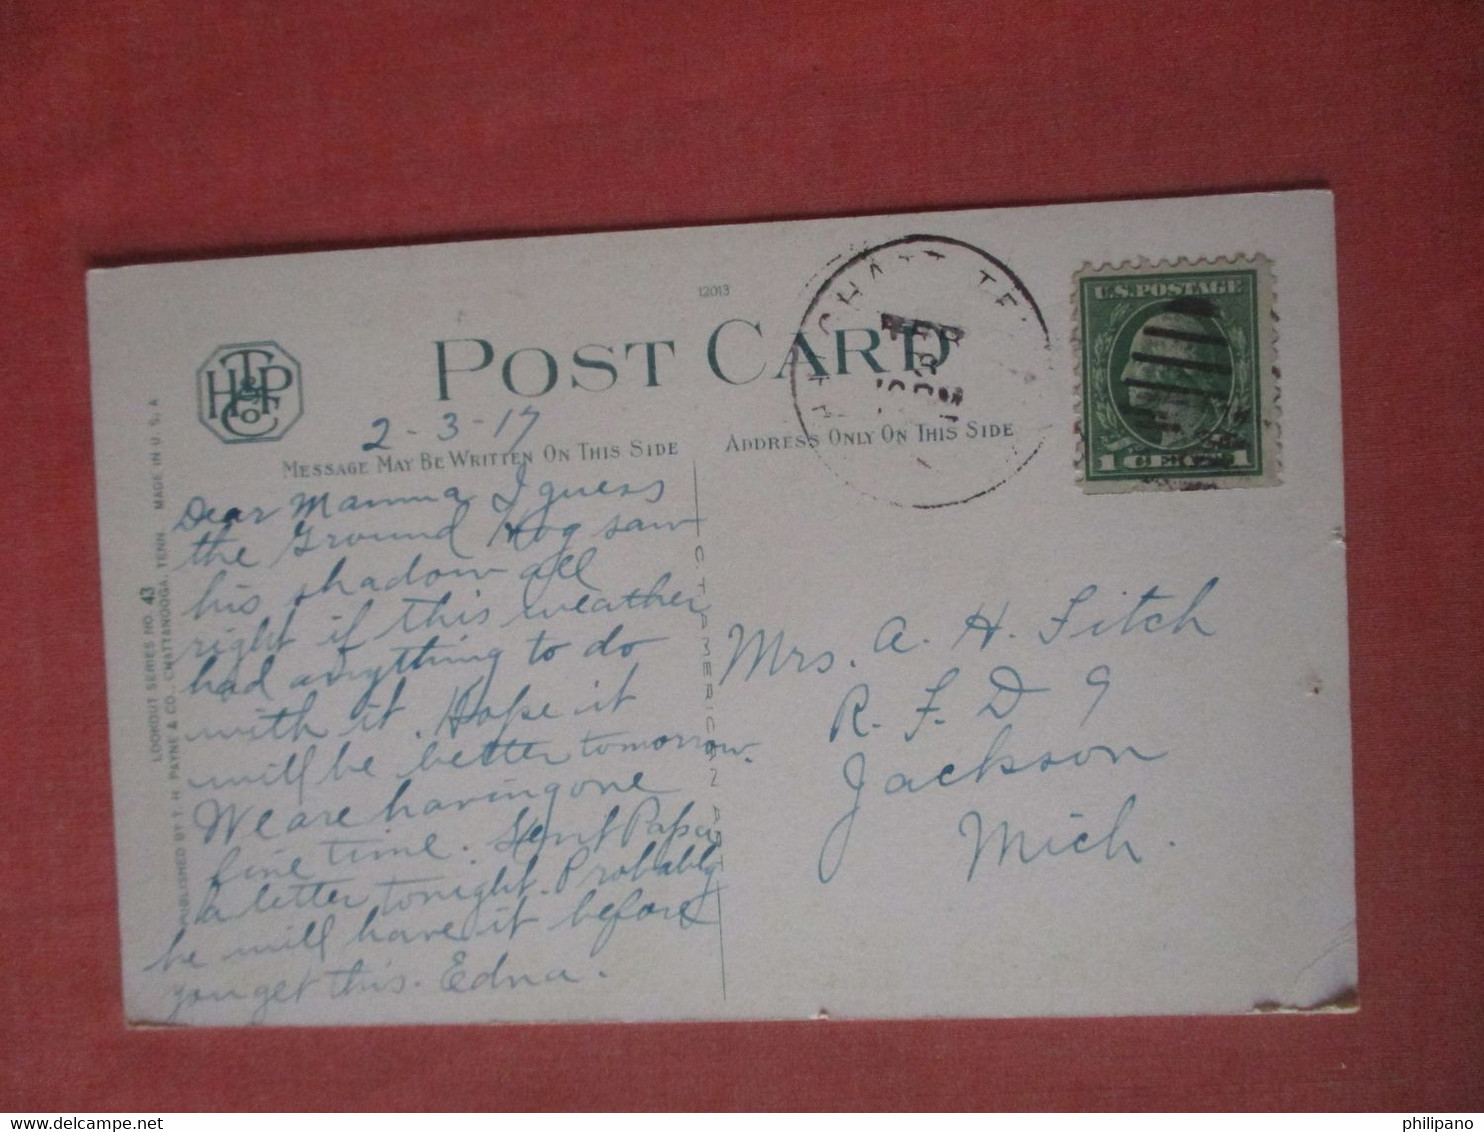 12013
POST CARD
T
H & P
Co
2-3-17
MESSAGE MAY BE WRITTEN ON THIS SIDE
ADDRESS ONLY ON THIS SIDE
CHATT TEN
FEB
U.S. POSTAGE
1 CENT 1
Dear Mamma I guess
the Ground Hog saw
his shadow all
right if this weather
had anything to do
with it. Hope it
will be better tomorrow.
We are having one
fine time. Sent Papa
a letter tonight. Probably
he will have it before
you get this. Edna.
Mrs. A. H. Fitch
R. F. D 9
Jackson
Mich.
LOOKOUT SERIES NO. 43
PUBLISHED BY T. H. PAYNE & CO., CHATTANOOGA, TENN. MADE IN U. S. A
C. T. AMERICAN ART
philipano